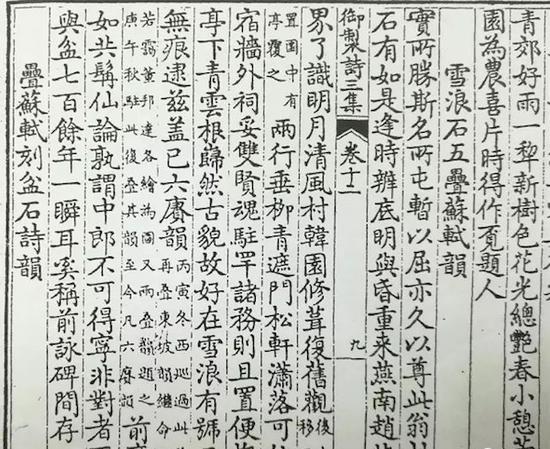 青郊好雨一犂新樹色花光總艷春小憩
園為農喜片時得作覔題人
雪浪石五疊蘇軾韻
實所勝斯名所屯暫以屈亦久以尊此翁
石有如是逢時辨底明與昏重来燕南趙
御製詩三集 卷十一 九
界了識明月清風村韓園修葺復舊觀後移
置園中有
亭覆之
兩行垂柳青遮門松軒瀟落可
宿牆外祠妥雙賢魂駐罕諸務則且置便
亭下青雲根歸然古貌故好在雪浪有號
無痕逮兹盖已六賡韻丙寅冬西巡過此
再疊東坡韻繼命
若靄董邦達各繪為圖又兩疊韻題之
庚午秋駐此復疊其韻至今凡六賡韻
前
如共髯仙論孰謂中郎不可得寧非對者
與盆七百餘年一瞬耳奚稱前詠碑間存
疊蘇軾刻盆石詩韻